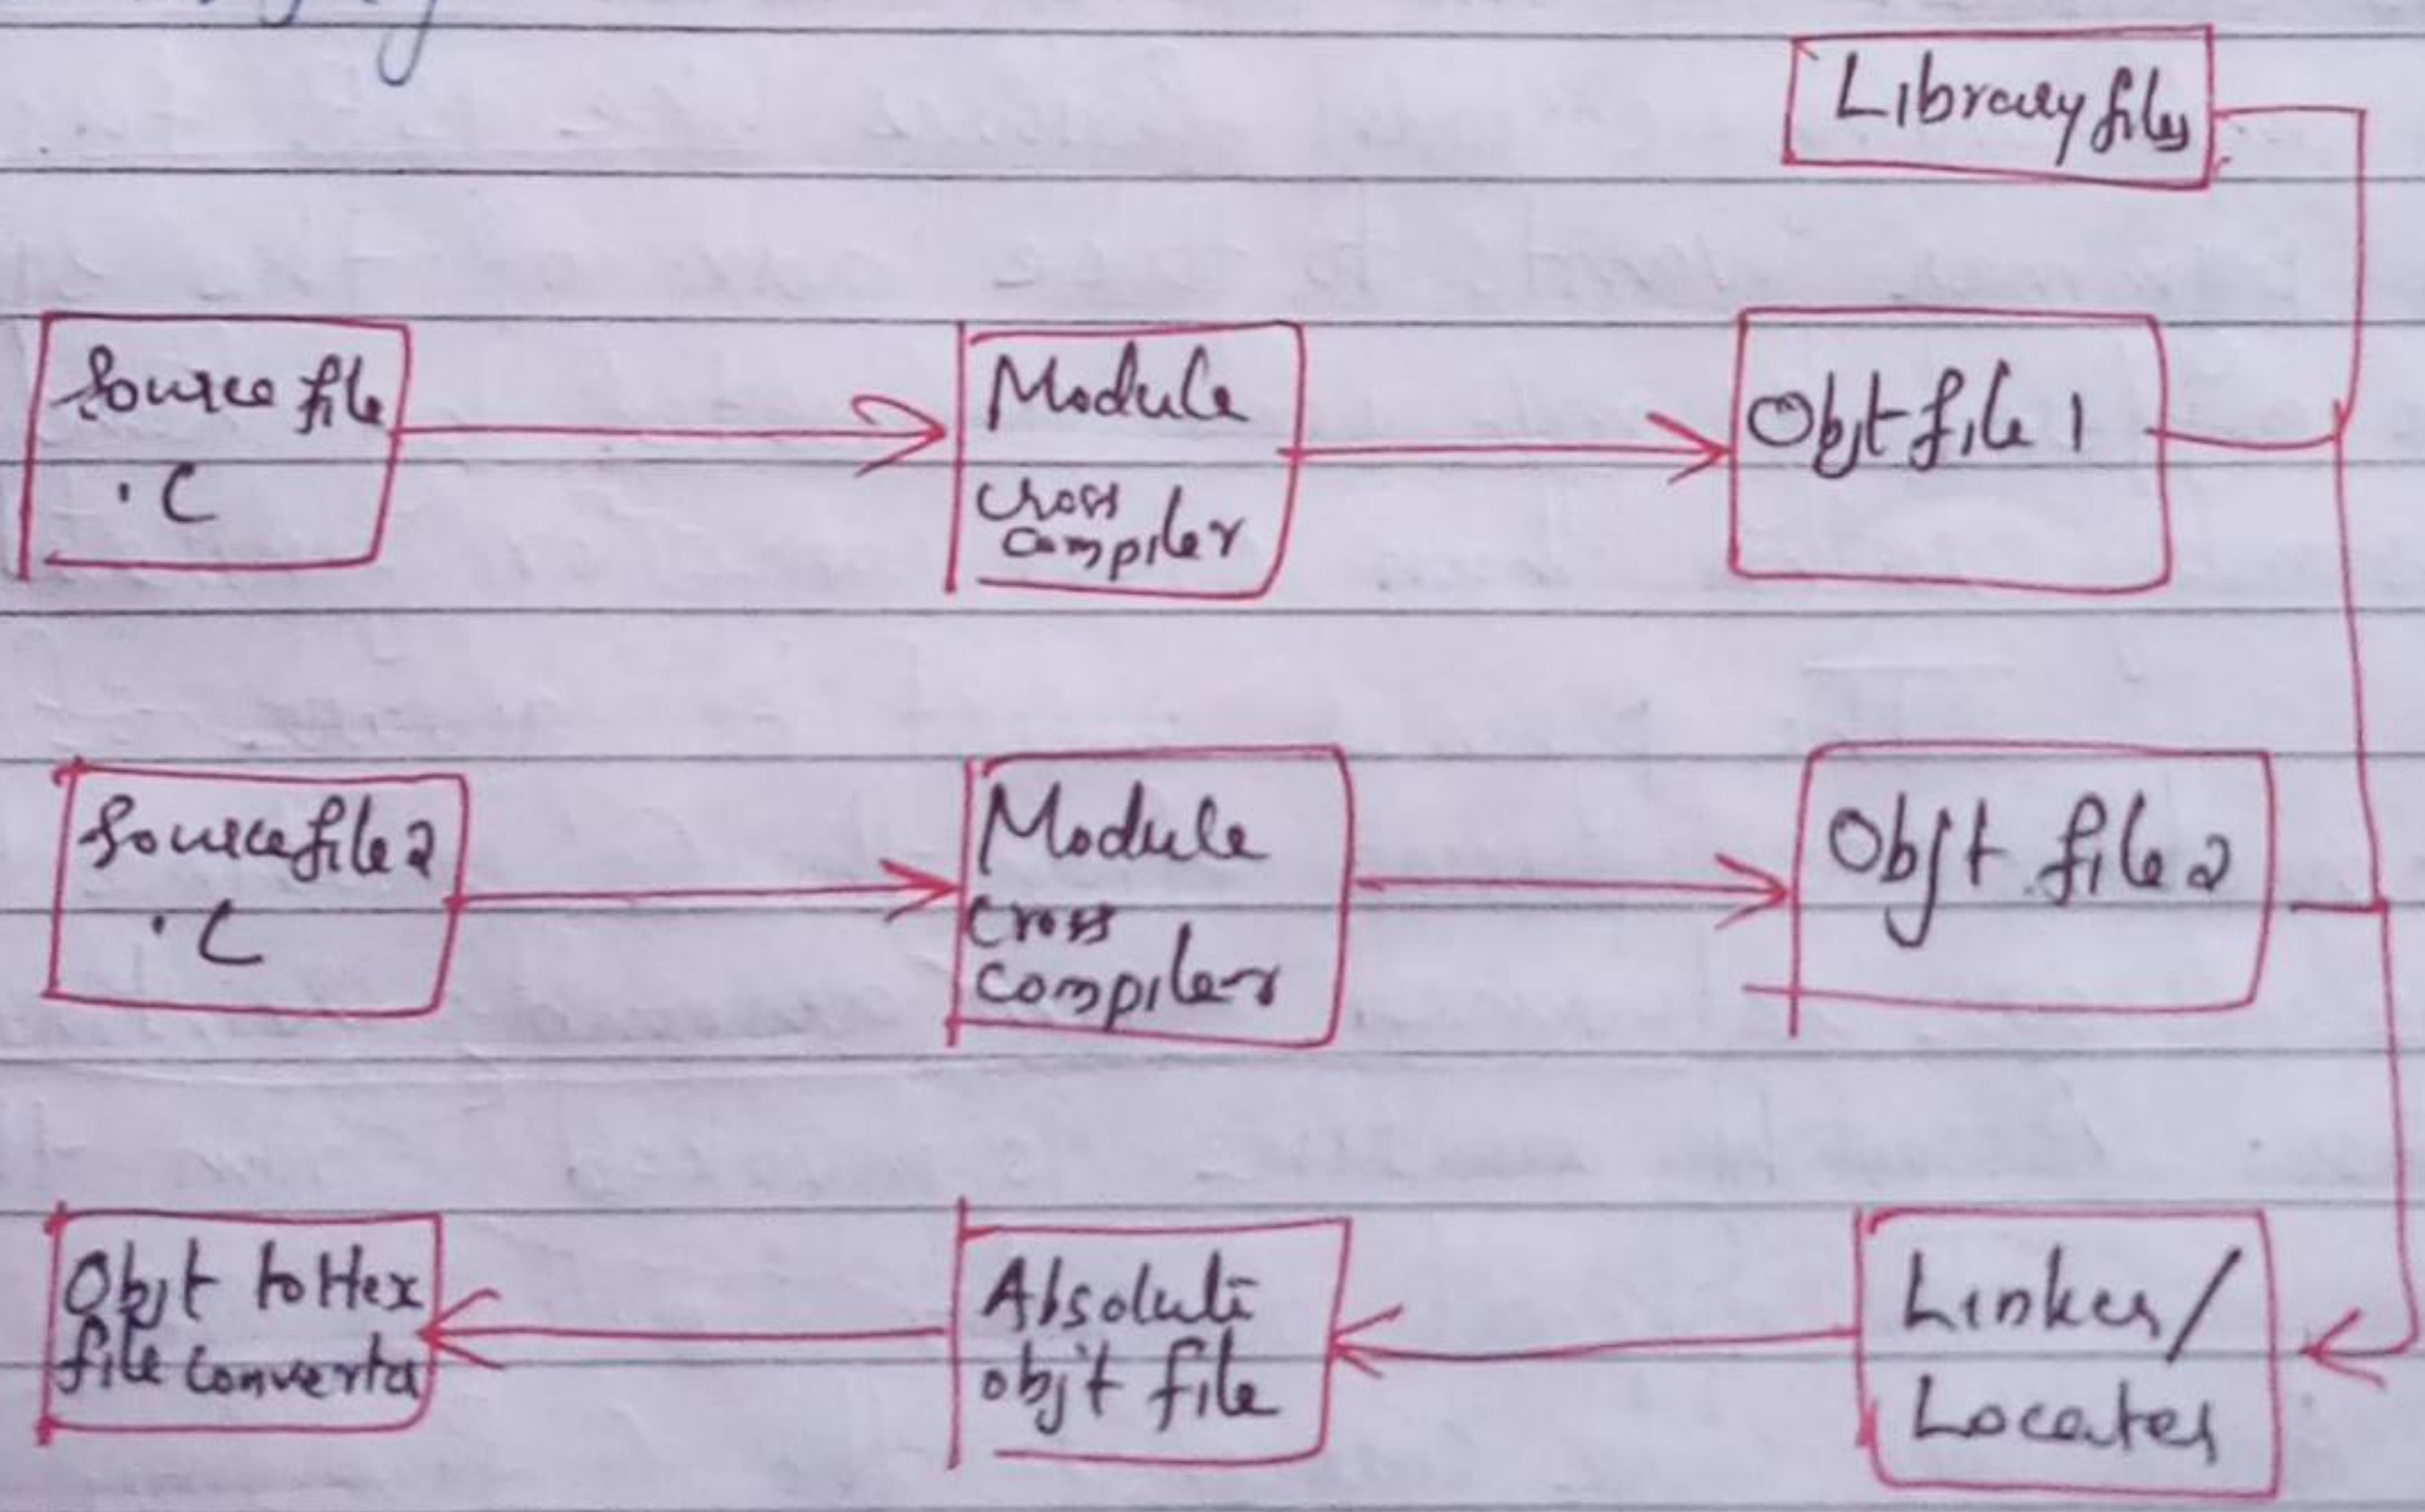 Library files
Source file
.C
Module
Cross
Compiler
Objt file 1
Source file 2
.C
Module
Cross
Compiler
Objt file 2
Objt to Hex
file Converter
Absolute
objt file
Linker/
Locater